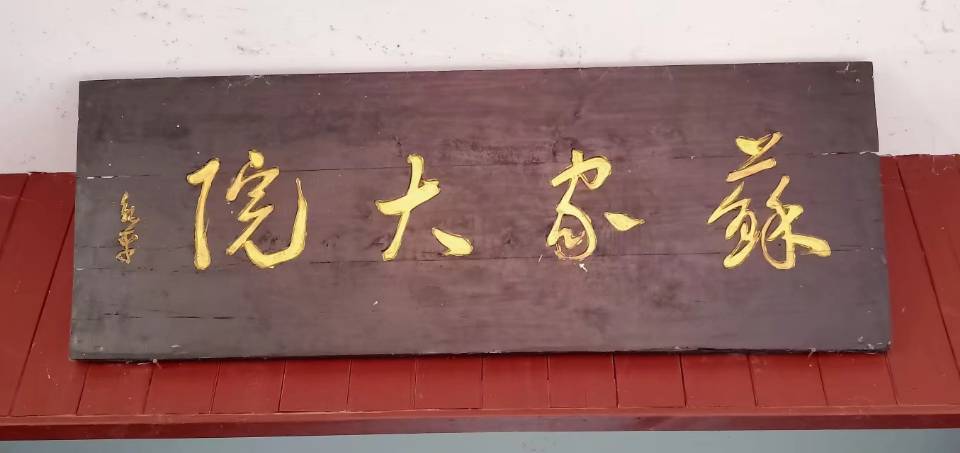 蘇家大院